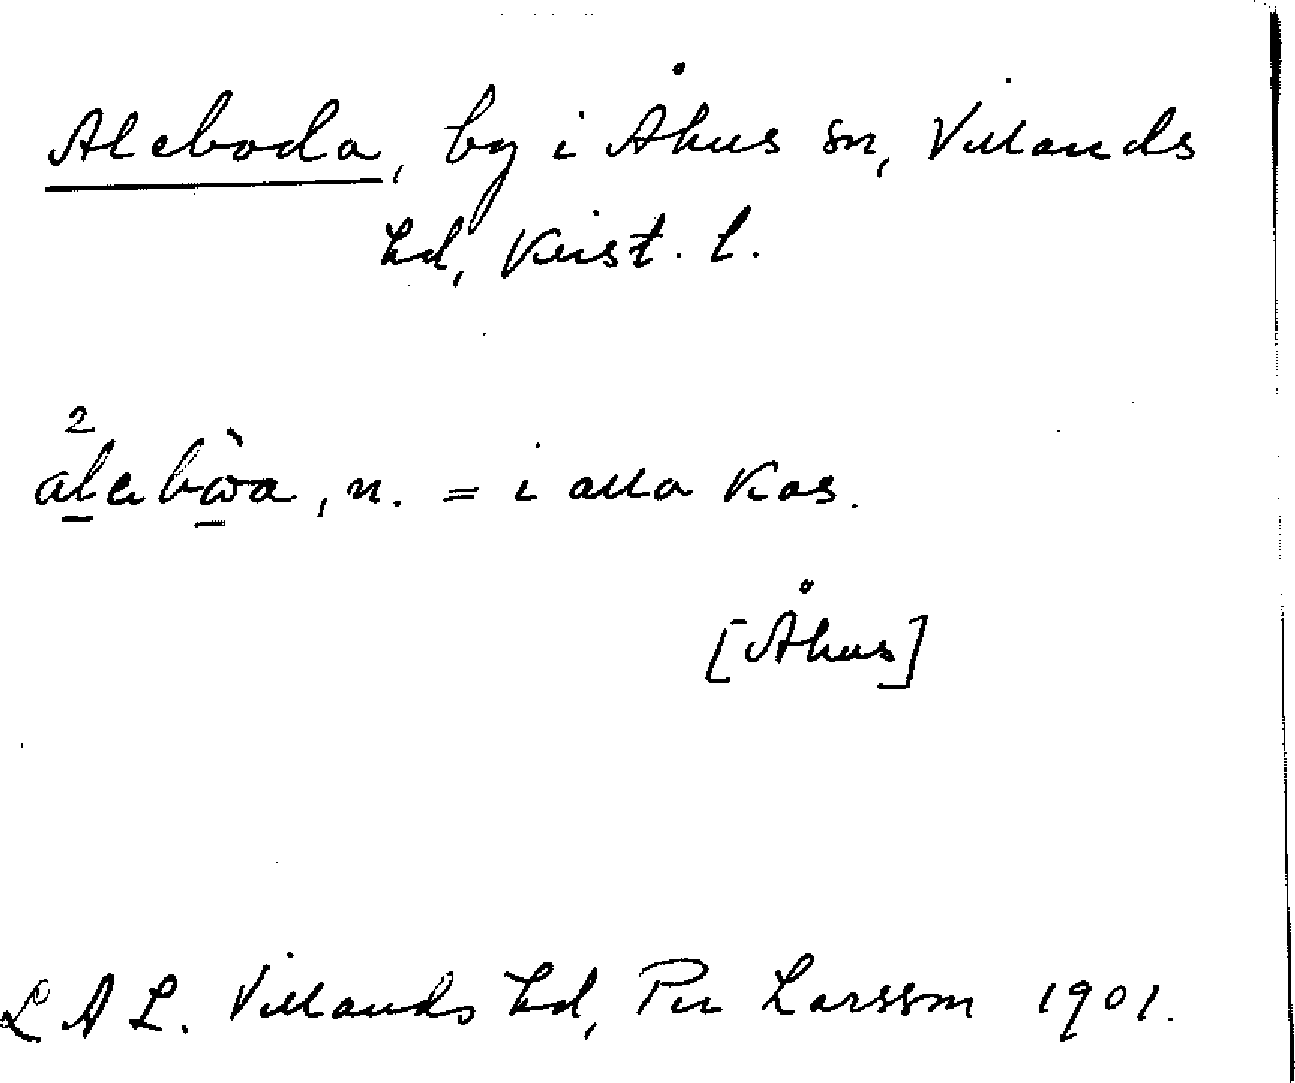 Aleboda, by i Åhus sn, Villands
hd, Krist. l.
²alebὼa, n. = i alla kas.
[Åhus]
L A L. Villands hd, Per Larsson 1901.